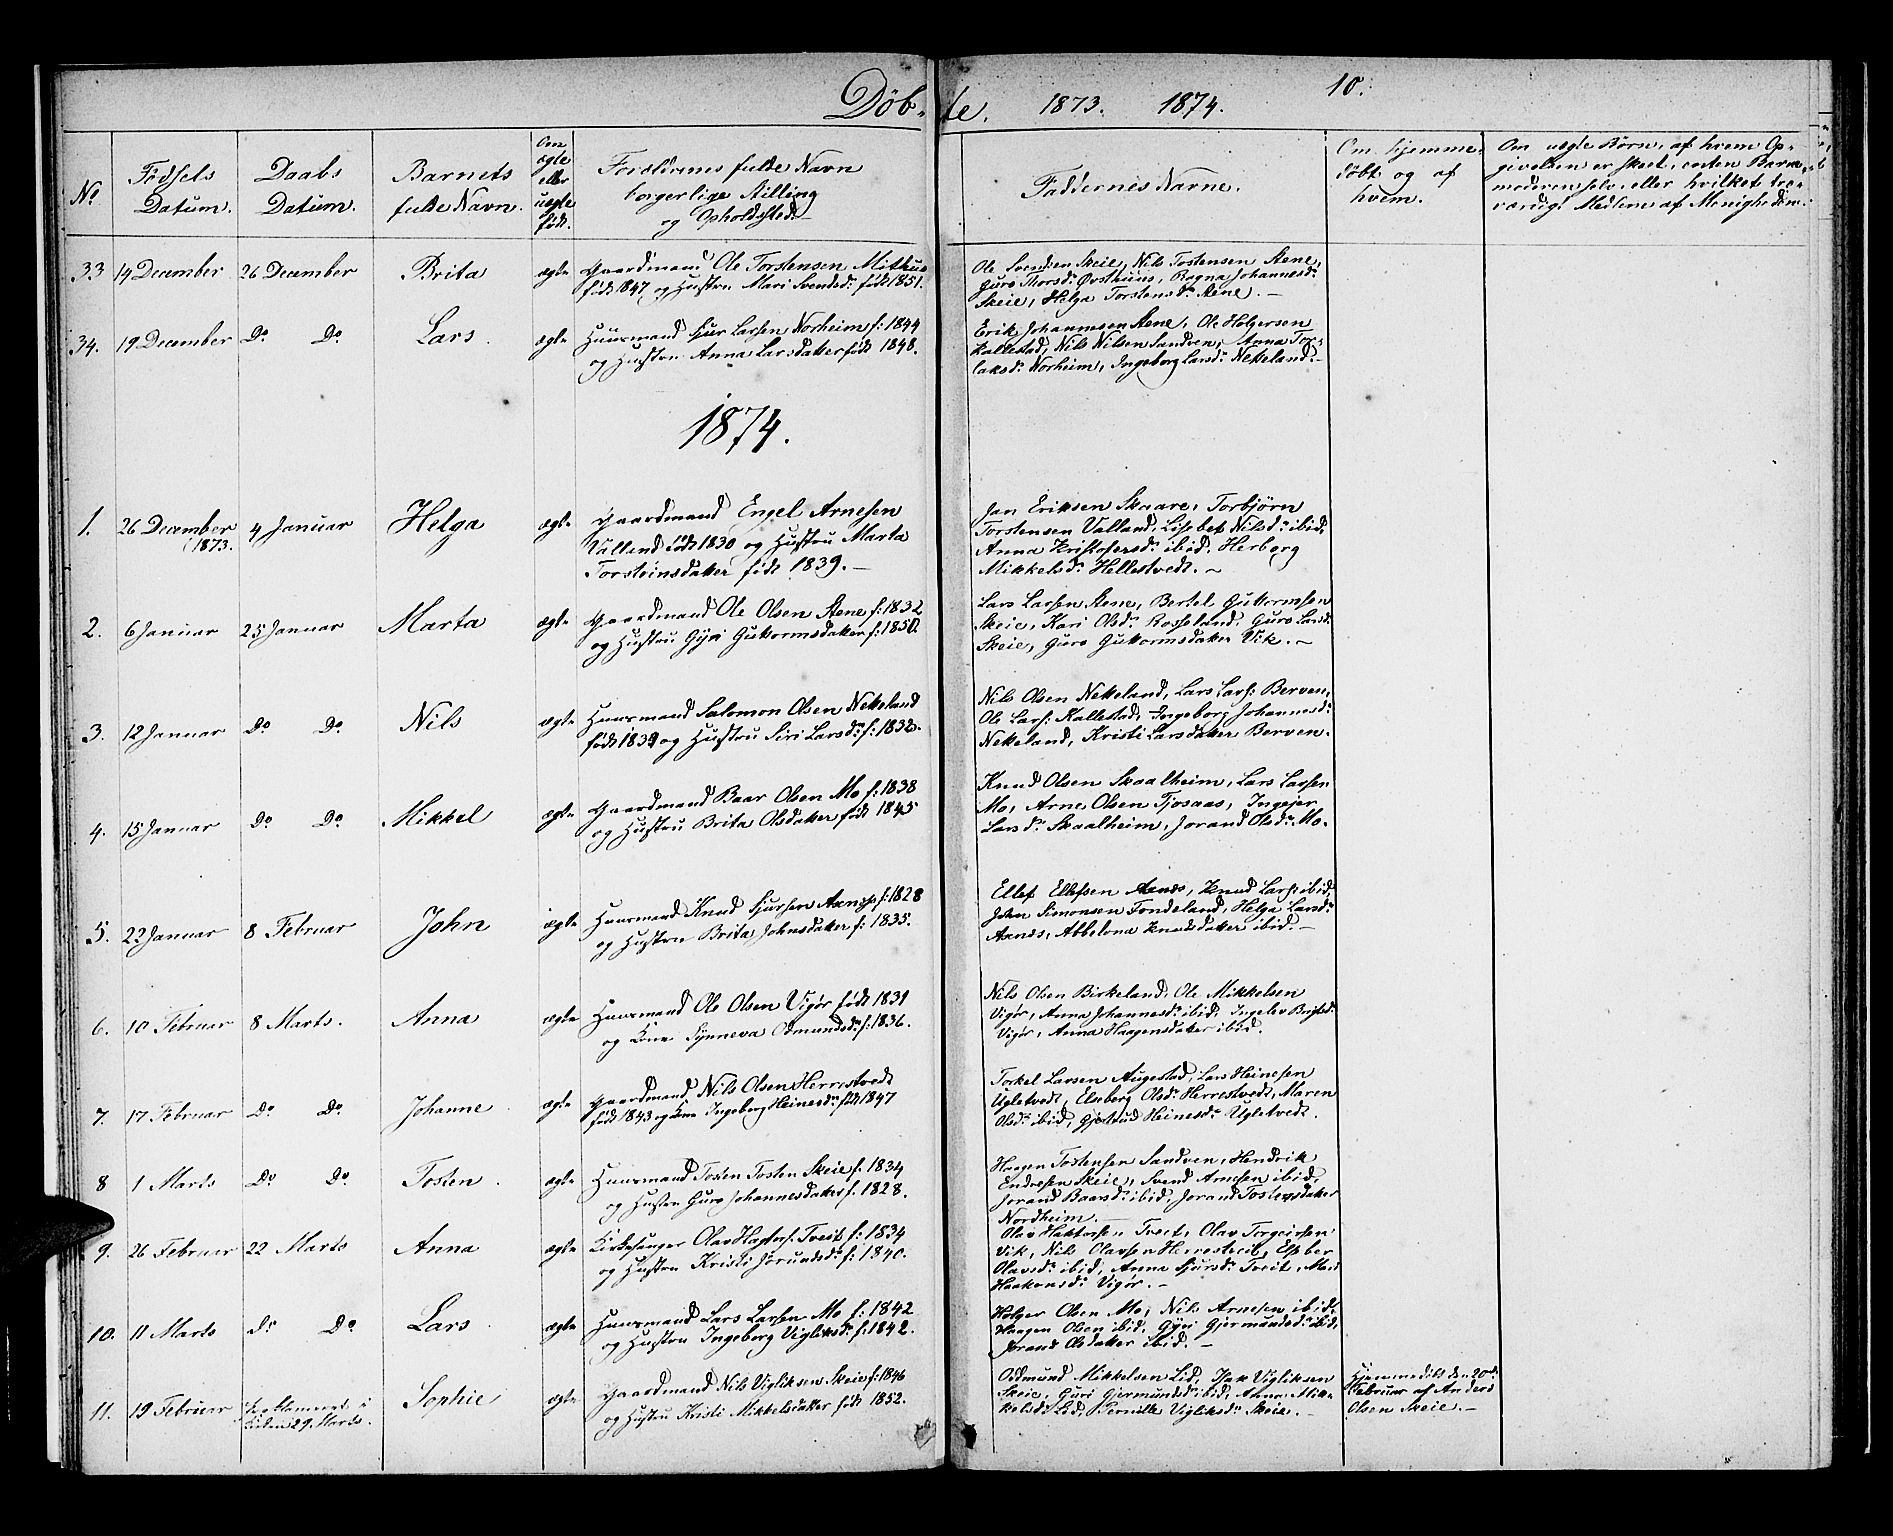 Döbte. 1873. 1874. 10.
No
Fødsels Datum.
Daabs Datum.
Barnets fulde Navn.
Om ægte eller uægte født.
Forældrenes fulde Navn borgerlige Stilling og Opholdssted
Faddernes Navne.
Om hjemmedøbt og af hvem.
Om uægte Børn, af hvem Opgivelsen er skeet, enten Barnemoderen selv, eller hvilket troværdigt Medlem af Menigheden.
33 14 December 26 December Brita ægte Gaardmand Ole Torstensen Mithus
født 1847, og Hustru Mari Svendsdr født 1851.
Ole Svendsen Skeie, Nils Tostensen Stene,
Guro Thorsdr Øvsthuus, Ragna Johannesdr
Skeie, Helga Torstensdr Stene. —
34. 19 December Do Do Lars ægte Huusmand Sjur Larsen Norheim f: 1844
og Hustru Anna Larsdatter født 1848.
Erik Johannessen Stene, Ole Holgersen
Kallestad, Nils Nilsen Sandven, Anna Tor-
laksdr Norheim, Ingeborg Larsdr Netteland. —
1874.
1. 26 December (1873. 4 Januar Helga ægte Gaardmand Engel Arnesen
Valland født 1830 og Hustru Marta
Torsteinsdatter født 1839. —
Jan Eriksen Skaare, Torbjörn
Torstensen Valland, Lisbet Nilsdr ibid,
Anna Kristofersdr ibid, Herborg
Mikkelsdr Hellestvedt. —
2. 6 Januar 25 Januar Marta ægte Gaardmand Ole Olsen Stene f: 1832
og Hustru Gyri Guttormsdatter f: 1850.
Lars Larsen Stene, Bertel Guttormsen
Skeie, Kari Olsdr Rosseland, Guro Larsdr
Skeie, Guro Guttormsdatter Vik. —
3. 12 Januar Do Do Nils ægte Huusmand Salomon Olsen Netteland
født 1839 og Hustru Siri Larsdr f: 1832.
Nils Olsen Netteland, Lars Lars: Berven,
Ole Lars: Kallestad, Ingeborg Johannesdr
Netteland, Kristi Larsdatter Berven.
4. 15 Januar Do Do Mikkel ægte Gaardmand Baar Olsen Mo f: 1838
og Hustru Brita Olsdatter født 1845
Knud Olsen Skaalheim, Lars Larsen
Mo, Arne Olsen Tjosaas, Ingejer
Larsdr Skaalheim, Jorand Olsdr Mo.
5. 22 Januar 8 Februar John ægte Huusmand Knud Sjursen Axnes f: 1828
og Hustru Brita Johnsdatter f: 1835.
Ellef Ellefsen Axnes, Knud Lars: ibid,
John Simonsen Fondeland, Helga Larsdr
Axnes, Abbelona Knudsdatter ibid. —
6. 10 Februar 8 Marts. Anna ægte Huusmand Ole Olsen Vigør født 1831
og Kone Synneva Odmundsdr f: 1836.
Nils Olsen Birkeland, Ole Mikkelsen
Vigør, Anna Johannesdr ibid, Ingelev
Vigør, Anna Haagensdatter ibid.
7. 17 Februar Do Do Johanne ægte Gaardmand Nils Olsen Herrestvedt
født 1843 og Kone Ingeborg Heinesdr født 1847
Torkel Larsen Augestad, Lars Heinesen
Ugletvedt, Elseberg Olsdr Herrestvedt, Maren
Olsdr ibid, Gjertrud Heinesdr Ugletvedt.
8 1 Marts Do Do Tosten ægte Huusmand Tosten Tosten Skeie f: 1834
og Hustru Guro Johannesdatter f: 1828.
Haagen Tostensen Sandven, Hendrik
Endresen Skeie, Svend Arnesen ibid,
Jorand Baarsdr ibid, Jorand Tostensdatter
Nordheim. —
9. 26 Februar 22 Marts Anna ægte Kirkesanger Olav Tveit f: 1834
og Hustru Kristi Jorundsdr f: 1840.
Olav Haktorsen Tveit, Olav Torgeirsen
Vik, Nils Olavsen Herrestveit, Elsber
Olavsdr ibid, Anna Sjursdr Tveit, Mari
Haakonsdr Vigør. —
10. 11 Marts Do Do Lars ægte Huusmand Lars Larsen Mo f: 1842
og Hustru Ingeborg Vigliksdr f: 1842.
Holger Olsen Mo, Nils Arnesen ibid,
Haagen Olsen ibid, Gyri Gjermundsdr ibid,
Jorand Olsdatter ibid. —
11. 19 Februar 29 Marts. Sophie ægte Gaardmand Nils Vigliksen Skeie f: 1846
og Hustru Kristi Mikkelsdatter født 1852.
Odmund Mikkelsen Lid, Vigliksen
Skeie, Guri Gjermundsdr ibid, Anna Mik-
kelsdr Lid, Pernille Vigliksdr Skeie. —
Hjemmedöbt den 20de
Februar af Anders
Olsen Skeie. —